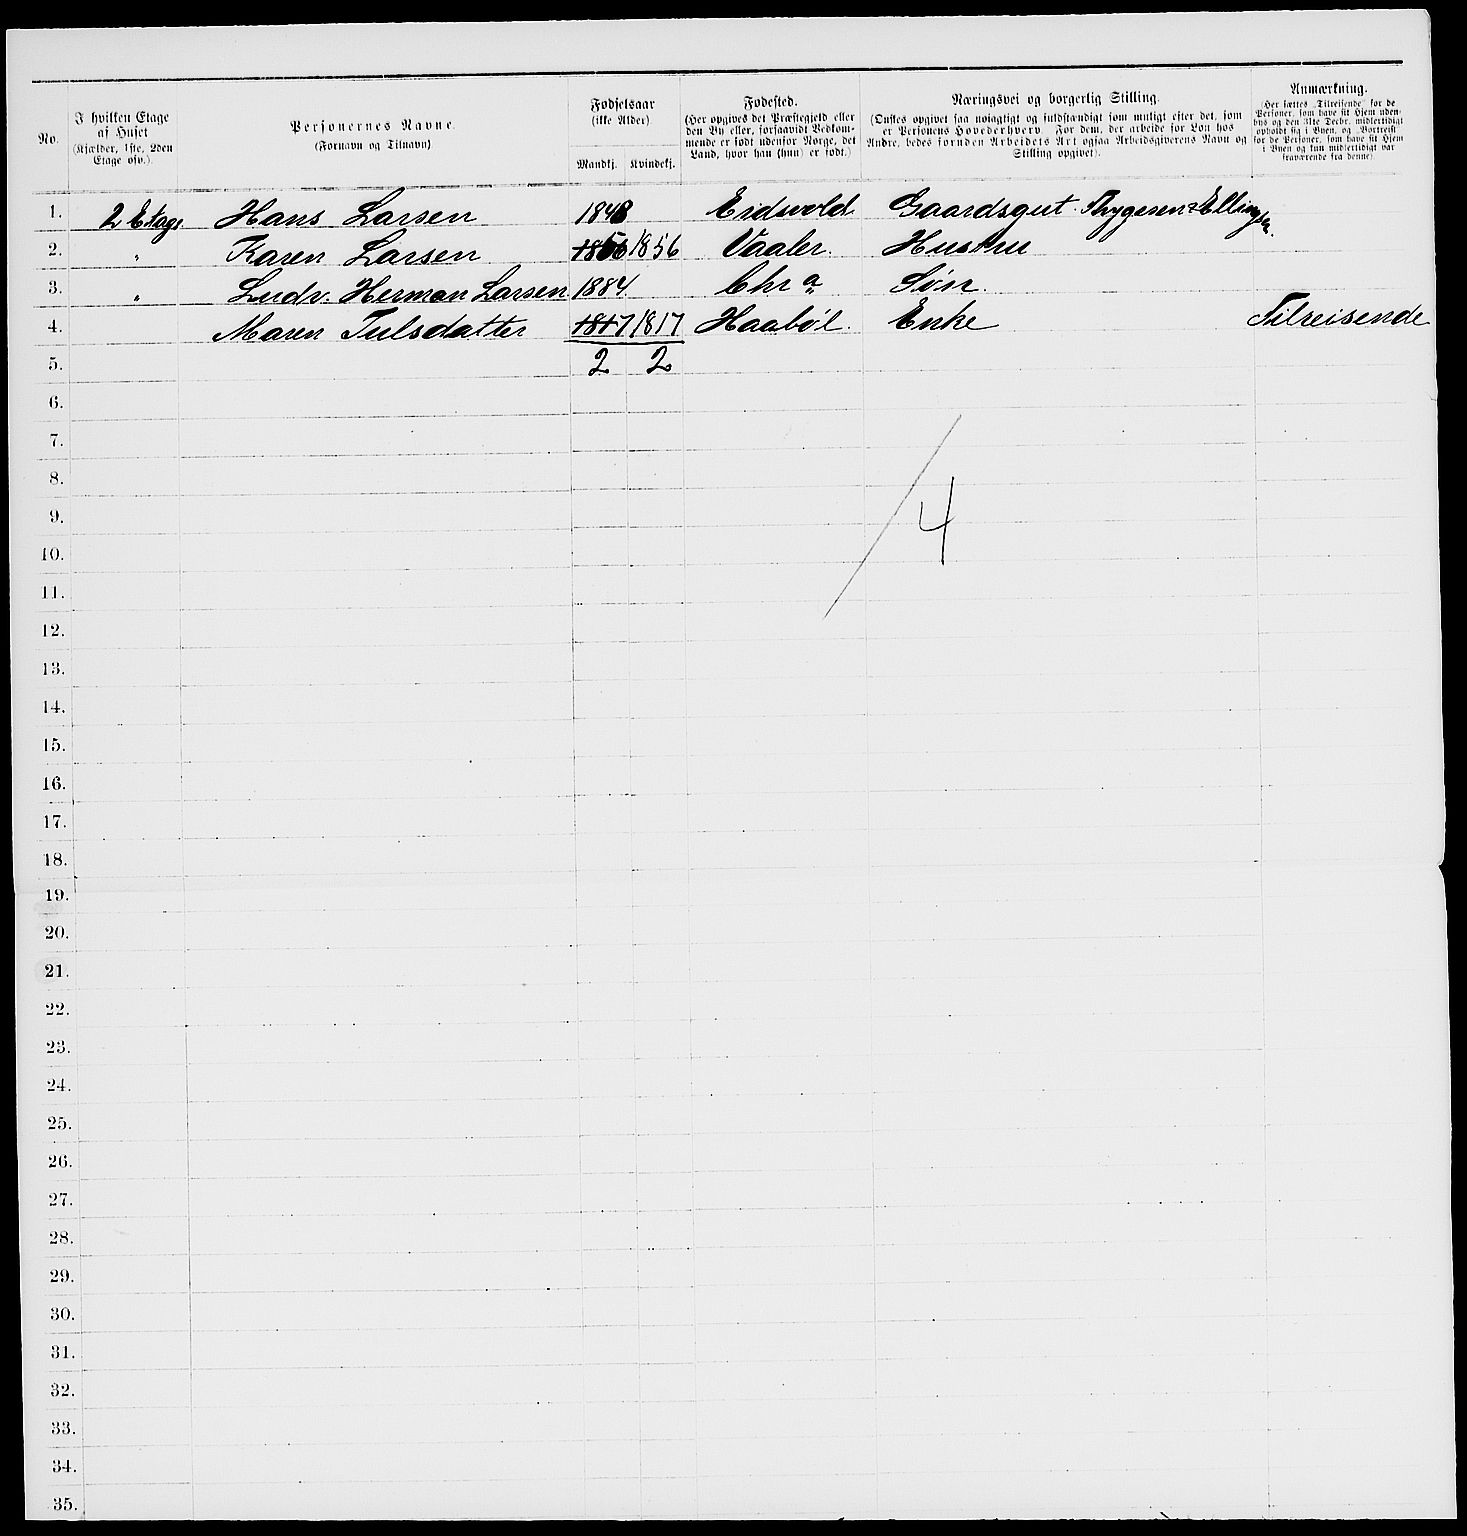 No. I hvilken Etage af Huset (Kjælder, 1ste, 2den Etage osv.). Personernes Navne. (Fornavn og Tilnavn) Fødselsaar (ikke Alder). Mandkj. Kvindekj. Fødested. (Her opgives det Præstegjeld eller den By eller, forsaavidt Vedkommende er født udenfor Norge, det Land, hvor han (hun) er født.) Næringsvei og borgerlig Stilling. (Ønskes opgivet saa nøiagtigt og fuldstændigt som muligt efter det, som er Personens Hovederhverv. For dem, der arbeide for Løn hos Andre, bedes foruden Arbeidets Art ogsaa Arbeidsgiverens Navn og Stilling opgivet). Anmærkning. (Her sættes "Tilreisende" for de Personer, som have sit Hjem udenbys og den 31te Decbr. midlertidigt opholdt sig i Byen, og "Bortreist" for de Personer, som have sit Hjem i Byen og kun midlertidigt var fraværende fra denne)
1. 2 Etage Hans Larsen 1848 Eidsvold Gaardsgut Thygesen & Ellingsen.
2. " Karen Larsen 1856 1856 Vaaler. Hustru
3. " Ludv. Herman Larsen 1884 Chr a Søn.
4. Maren Julsdatter 1817 1817 Haabøl. Enke Tilreisende
5. 2 2
6.
7.
8.
9. 4
10.
11.
12.
13.
14.
15.
16.
17.
18.
19.
20.
21.
22.
23.
24.
25.
26.
27.
28.
29.
30.
31.
32.
33.
34.
35.